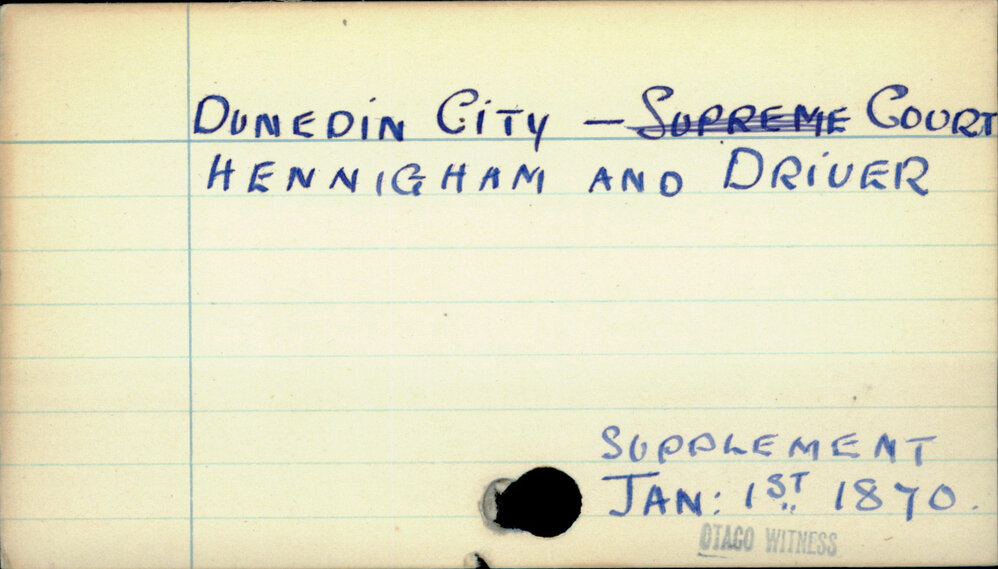 DUNEDIN CITY — SUPREME COURT
HENNIGHAM AND DRIVER
SUPPLEMENT
JAN: 1ST 1870.
OTAGO WITNESS